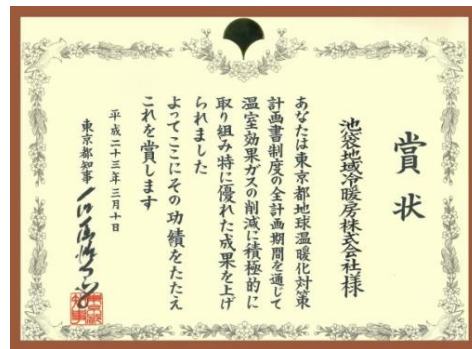 賞状
池袋地域冷暖房株式会社様
あなたは東京都地球温暖化対策
計画書制度の全計画期間を通して
温室効果ガスの削減に積極的に
取り組み特に優れた成果を上げ
られました
よってここにその功績をたたえ
これを賞します
平成二十三年三月十日
東京都知事